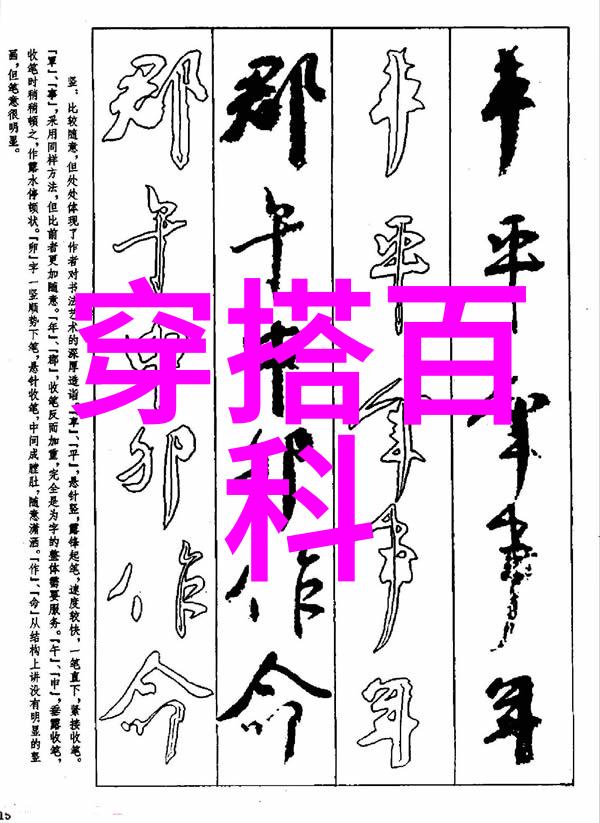 丰平事年
丰平事年
郡午申卯作命
郡午申卯作命
竖:比较随意,但处处体现了作者对书法艺术的深厚造诣。、『平』,悬针竖,露锋起笔,速度较快,一笔直下,紧接收笔。
、『事』,采用同样方法,但比前者更加随意。『年』、『郡』,收笔反而加重,完全是为字的整体需要服务。『午』、『申』,垂露收笔,
收笔时稍稍顿之,作露水停顿状。『卯』字一竖顺势下笔,悬针收笔,中间成膛肚,随意潇洒。『作』、『命』从结构上讲没有明显的竖
画,但笔意很明显。
穿搭百
科
15